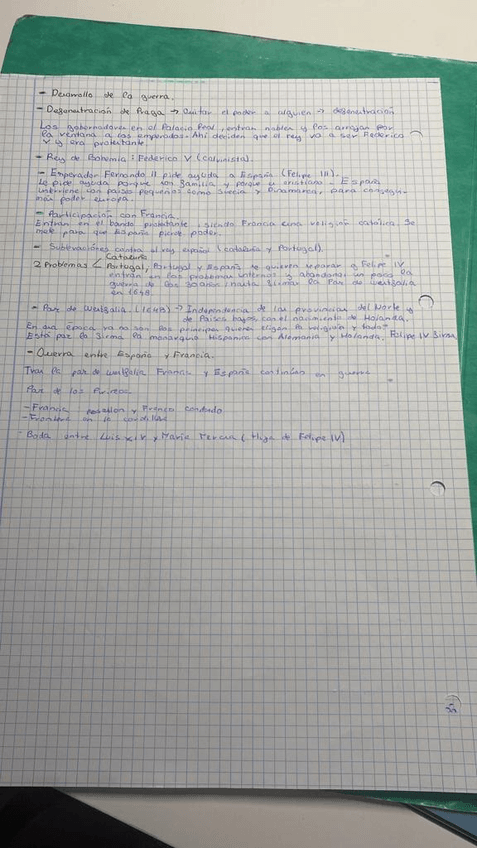 - Desarrollo de la guerra.
- Defenestración de Praga → Quitar el poder a alguien → defenestración
Los gobernadores en el Palacio Real, entran nobles y los arrojan por
la ventana a los emperados. Ahí deciden que el rey va a ser Federico
V y era protestante.
- Rey de Bohemia: Federico V (calvinista).
- Emperador Fernando II pide ayuda a España (Felipe III).
Le pide ayuda porque son familia y porque es cristiano. España
interviene los países pequeños como Suecia y Dinamarca, para conseguir
más poder europa.
- Participación con Francia.
Entran en el bando protestante, siendo Francia una religión católica. Se
mete para que España pierda poder.
- Sublevaciones contra el rey español (cataluña y Portugal).
2 Problemas < Cataluña
Portugal, Portugal y España se quieren separar y Felipe IV
entran en los problemas internos y abandona un poco la
guerra de los 30 años, hasta firmar la Paz de Westfalia
en 1648.
- Paz de Westfalia. (1648) → Independencia de las provincias del Norte y
de Países bajos con el nacimiento de Holanda.
En esa época ya no son los principes quienes eligen la religión y todo
Esta paz la firma la monarquía Hispanica con Alemania y Holanda. Felipe IV firma
- Guerra entre España y Francia.
Tras la paz de westfalia Francia y España continúan en guerra
Paz de los Pirineos
- Francia rosellon y Franco condado
- Frontera en la cordillera
- Boda entre Luis XIV y María Teresa (Hija de Felipe IV)